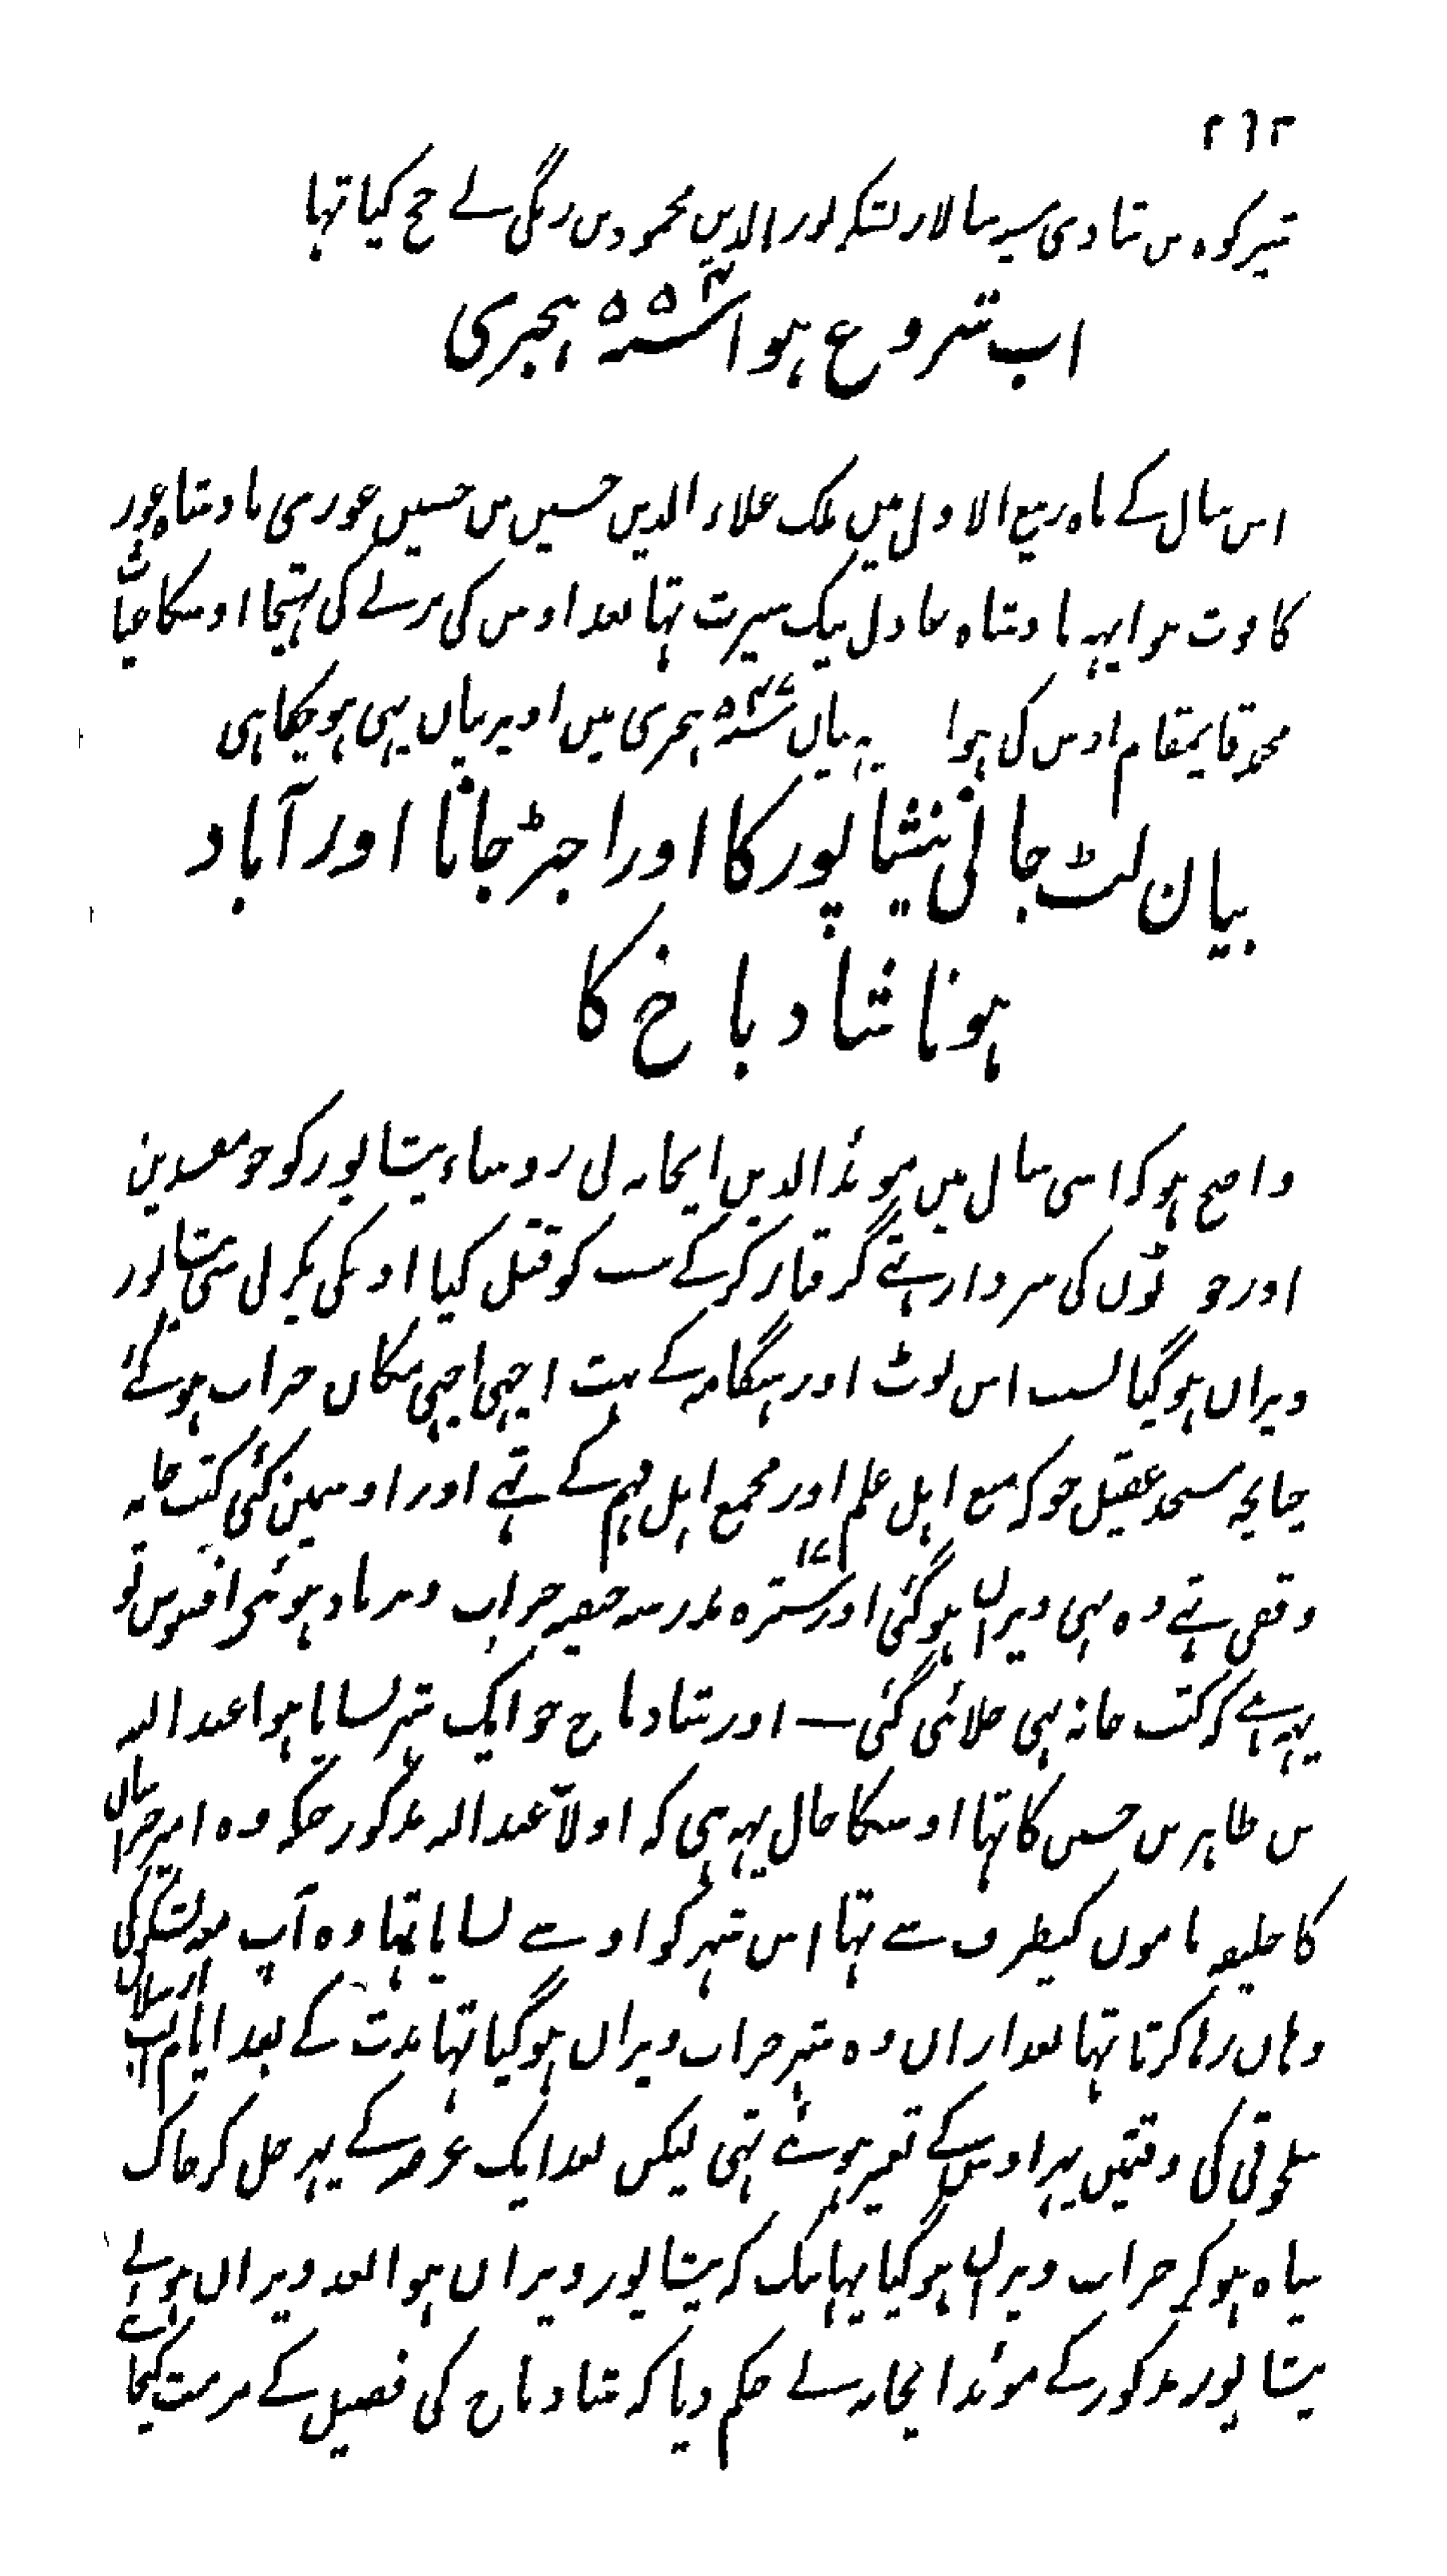 ۲۶۲
شیرکوہ بن شادی سپہ سالار لشکر نور الدین محمود بن زنگی نے حج کیا تہا
اب شروع ہوا سنہ ۵۵۶ ہجری
اس سال کے ماہ ربیع الاول میں ملک علاء الدین حسین بن حسین غوری بادشاہ غور
کا فوت ہوا یہہ بادشاہ عادل نیک سیرت تہا بعد اوس کی مرنے کی بہتیجا اوسکا غیاث
محمد قایمقام اوس کی ہوا یہ بیان سنہ ۵۴۷ ہجری میں اوپر بیاں بہی ہوچکا ہی
بیان لٹ جانی نیشاپور کا اور اجڑ جانا اور آباد
ہونا شاد باخ کا
واضح ہو کہ اسی سال میں موئد الدین ایخابہ نی روساء نیشاپور کو جو مفسدین
اور جو لٹوں کی سردار تہے گرفتار کر کے سب کو قتل کیا اونکی پکڑنی سی نیشاپور
ویراں ہوگیا بسبب اس لوٹ اور ہنگامہ کے بہت اچہی اچہی مکاں خراب ہو گئے
چنانچہ مسجد عقیل جو کہ مجمع اہل علم اور مجمع اہل فہم کے تہے اور اوسمین کئی کتب خانہ
وقفی تہے وہ بہی ویراں ہوگئی اور سترہ ۱۷ مدرسہ حنفیہ خراب و برباد ہوئی افسوس تو
یہہ ہے کہ کتب خانہ بہی جلائی گئی ــ اور شادباخ جو ایک شہر بسایا ہوا عبد اللہ
بن طاہر بن حسیں کا تہا اوسکا حال یہہ ہی کہ اولاً عبد اللہ مذکور جبکہ وہ امیر خراساں
کا خلیفہ ماموں کیطرف سے تہا اس شہر کو اوسے بسایا تہا وہ آپ مع لشکر کی
وہاں رہا کرتا تہا بعد ازاں وہ شہر خراب ویراں ہو گیا تہا مدت کے بعد ایام الپ ارسلاں
سلجوقی کی وقتمیں پہر اوس کے تعمیر ہوئے تہی لیکں بعد ایک عرصہ کے پہر جل کر خاک
سیاہ ہوکر خراب ویراں ہو گیا یہانتک کہ نیشاپور ویراں ہوا بعد ویراں ہونے
نیشاپور مذکور کے موئد ایخابہ نے حکم دیا کہ شادباخ کی فصیل کے مرمت کیجائے